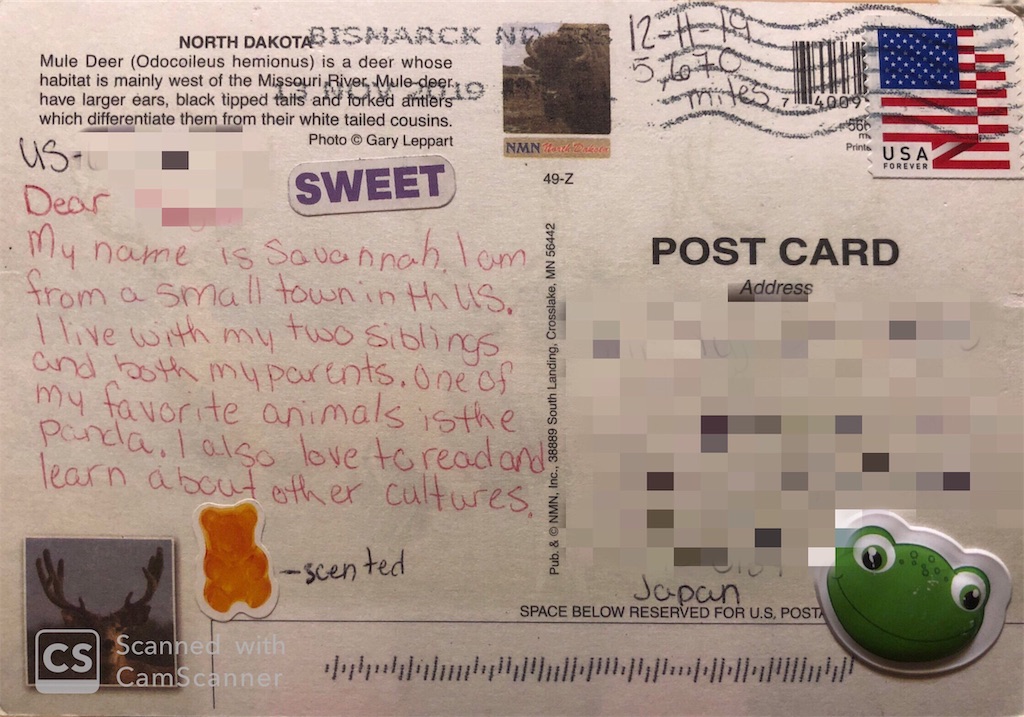 NORTH DAKOTA
Mule Deer (Odocoileus hemionus) is a deer whose
habitat is mainly west of the Missouri River. Mule deer
have larger ears, black tipped tails and forked antlers
which differentiate them from their white tailed cousins.
Photo © Gary Leppart
BISMARCK ND
13 NOV 2019
NMN North Dakota
49-Z
12-11-19
5,670
miles
7 4009
USA
FOREVER
US-
SWEET
Dear
My name is Savannah. I am
from a small town in th US.
I live with my two siblings
and both my parents. One of
my favorite animals is the
panda. I also love to read and
learn about other cultures.
-scented
Pub. & © NMN, Inc., 38889 South Landing, Crosslake, MN 56442
POST CARD
Address
Japan
SPACE BELOW RESERVED FOR U.S. POSTA
CS
Scanned with
CamScanner